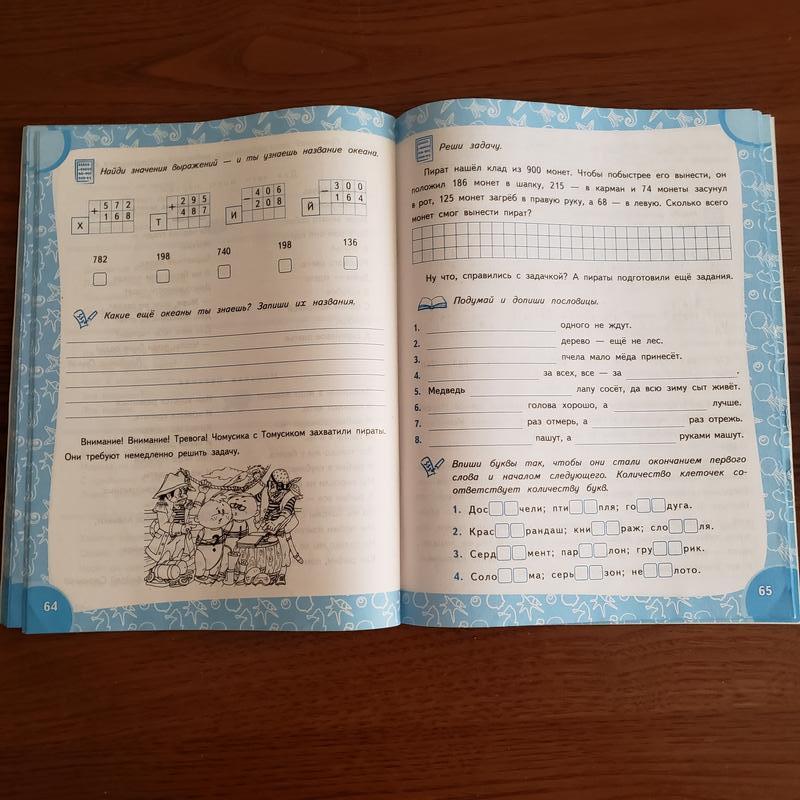 Найди значения выражений — и ты узнаешь название океана.
+ 5 7 2 + 2 9 5 − 4 0 6 − 3 0 0
Х 1 6 8 Т 4 8 7 И 2 0 8 Й 1 6 4
782 198 740 198 136
Какие ещё океаны ты знаешь? Запиши их названия.
Внимание! Внимание! Тревога! Чомусика с Томусиком захватили пираты.
Они требуют немедленно решить задачу.
64
Реши задачу.
Пират нашёл клад из 900 монет. Чтобы побыстрее его вынести, он
положил 186 монет в шапку, 215 — в карман и 74 монеты засунул
в рот, 125 монет загрёб в правую руку, а 68 — в левую. Сколько всего
монет смог вынести пират?
Ну что, справились с задачкой? А пираты подготовили ещё задания.
Подумай и допиши пословицы.
1. одного не ждут.
2. дерево — ещё не лес.
3. пчела мало мёда принесёт.
4. за всех, все — за .
5. Медведь лапу сосёт, да всю зиму сыт живёт.
6. голова хорошо, а лучше.
7. раз отмерь, а раз отрежь.
8. пашут, а руками машут.
Впиши буквы так, чтобы они стали окончанием первого
слова и началом следующего. Количество клеточек со-
ответствует количеству букв.
1. Дос чели; пти пля; го дуга.
2. Крас рандаш; кни раж; сло ля.
3. Серд мент; пар лон; гру рик.
4. Соло ма; серь зон; не лото.
65